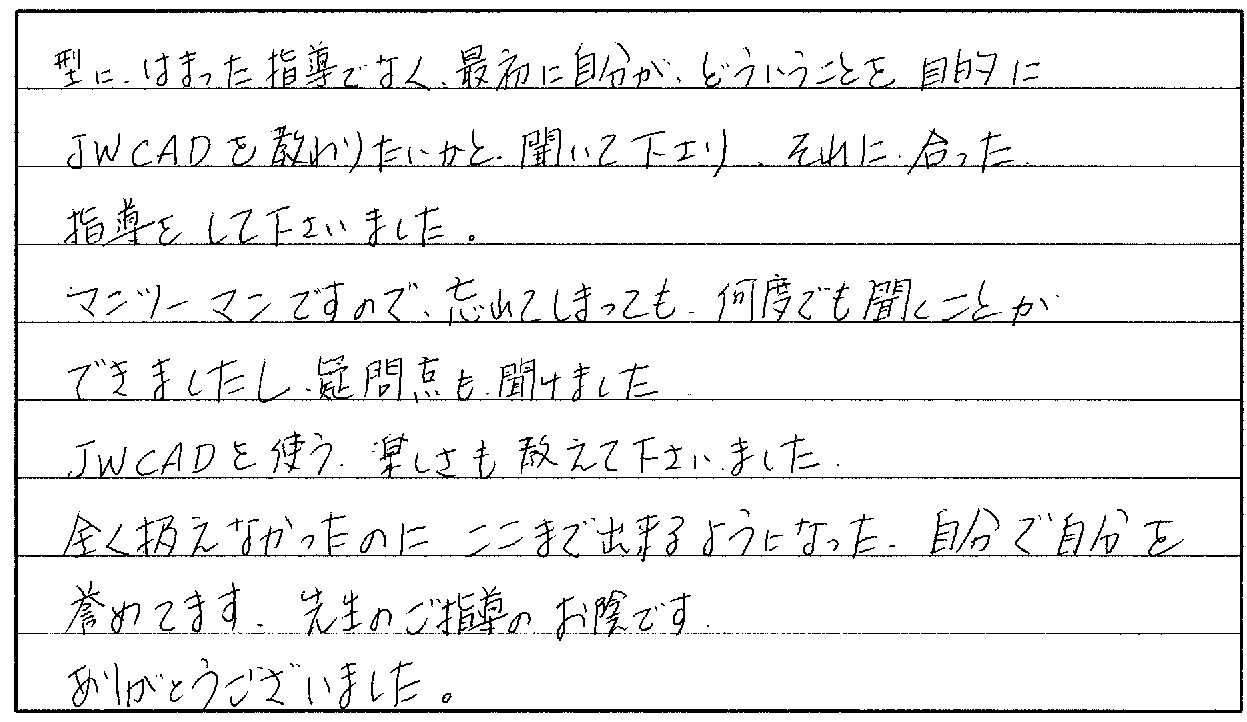 型に、はまった指導でなく、最初に自分が、どういうことを目的に
JWCADを教わりたいかと、聞いて下さり、それに、合った
指導をして下さいました。
マンツーマンですので、忘れてしまっても、何度でも聞くことが
できましたし、疑問点も、聞けました
JWCADを使う、楽しさも教えて下さいました。
全く扱えなかったのにここまで出来るようになった、自分で自分を
誉めてます、先生のご指導のお陰です。
ありがとうございました。